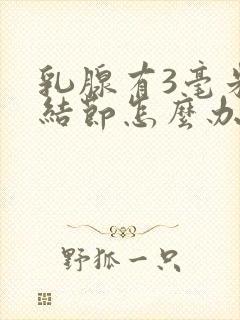 乳腺有3毫米
結節怎麼办
野狐一只